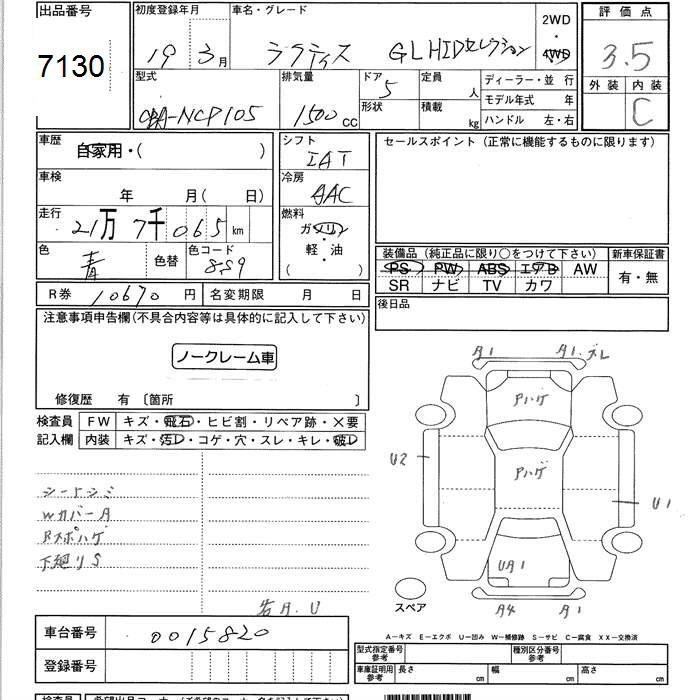 出品番号
7130
初度登録年月
19 3月
車名・グレード
ラクティス GL HIDセレクション
2WD
4WD
評価点
3.5
外装 内装
C
型式
CBA-NCP105
排気量
1500 cc
ドア
5
形状
定員
人
積載
kg
ディーラー・並行
モデル年式 年
ハンドル 左・右
車歴
自家用・( )
車検
年 月( 日)
走行
21万7千065 km
色
青
色替
色コード
8S9
シフト
IAT
冷房
AAC
燃料
ガソリン
軽・油
( )
セールスポイント(正常に機能するものに限ります)
装備品(純正品に限り○をつけて下さい)
PS PW ABS エアB AW
SR ナビ TV カワ
新車保証書
有・無
後日品
R券 10670円
名変期限 月 日
注意事項申告欄(不具合内容等は具体的に記入して下さい)
ノークレーム車
修復歴 有〔箇所 〕
検査員
記入欄
FW キズ・飛石・ヒビ割・リペア跡・×要
内装 キズ・汚レ・コゲ・穴・スレ・キレ・破レ
シートシミ
WカバーA
Rスポハゲ
下廻りS
若A.U
A1
A1.ズレ
Aハゲ
Aハゲ
U2
U1
UA1
A4
A1
スペア
車台番号
0015820
登録番号
A－キズ E－エクボ U－凹み W－補修跡 S－サビ C－腐食 XX－交換済
型式指定番号
参考
種別区分番号
参考
車庫証明用
参考
長さ cm
幅 cm
高さ cm